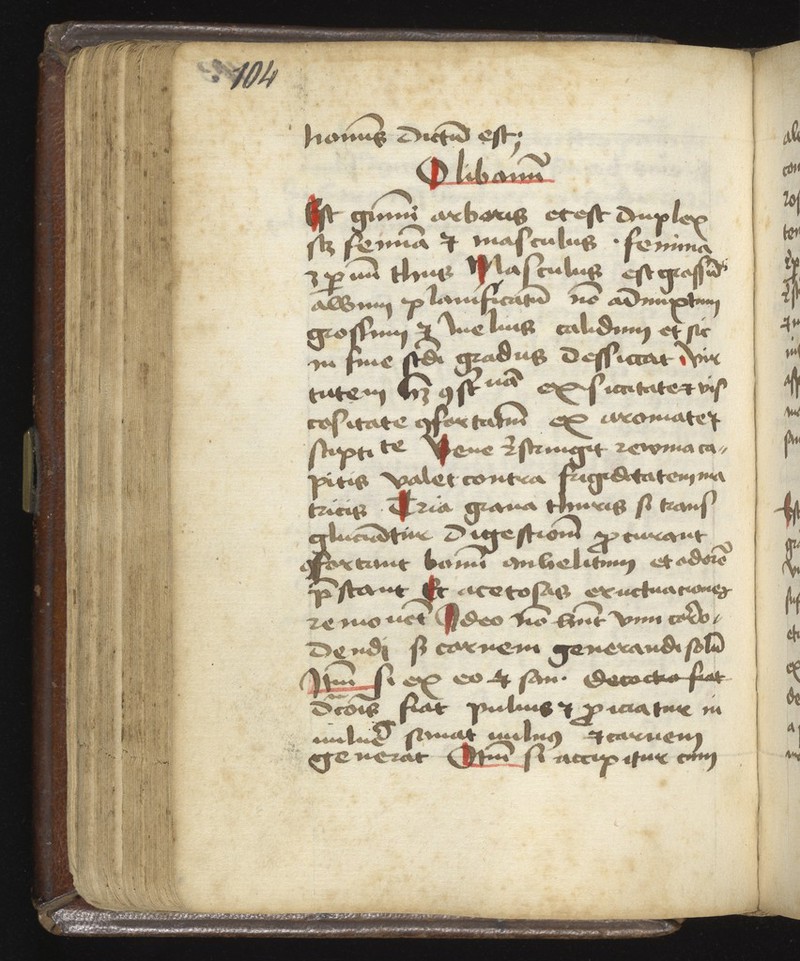 104
nomis dictu est;
Olibanu
Est gummi arboris et est duplex
scz femina et masculus . femina
thus Masculus est grossus
album planificatu no admixtum
grossum et melius calidum et sic
in fine scdi gradus dessiccat vir
tutem hz ex siccitate et vis
cositate confortatiua ex aromate et
stiptite Bene restringit reuma ca-
pitis valet contra frigiditatem ma
tricis Tria grana thuris si trans
gluciantur digestionem procurant
confortant bonu anhelitum et odore
prestant Et acetosas eructuaciones
remouet Ideo no hnt vim corro-
dendi sz carnem generandi solu
Itm si ex eo et decoctio fiat
fiat puluis et proiciatur in
uulnere sanat uulnus et carnem
generat Itm si accipitur cum